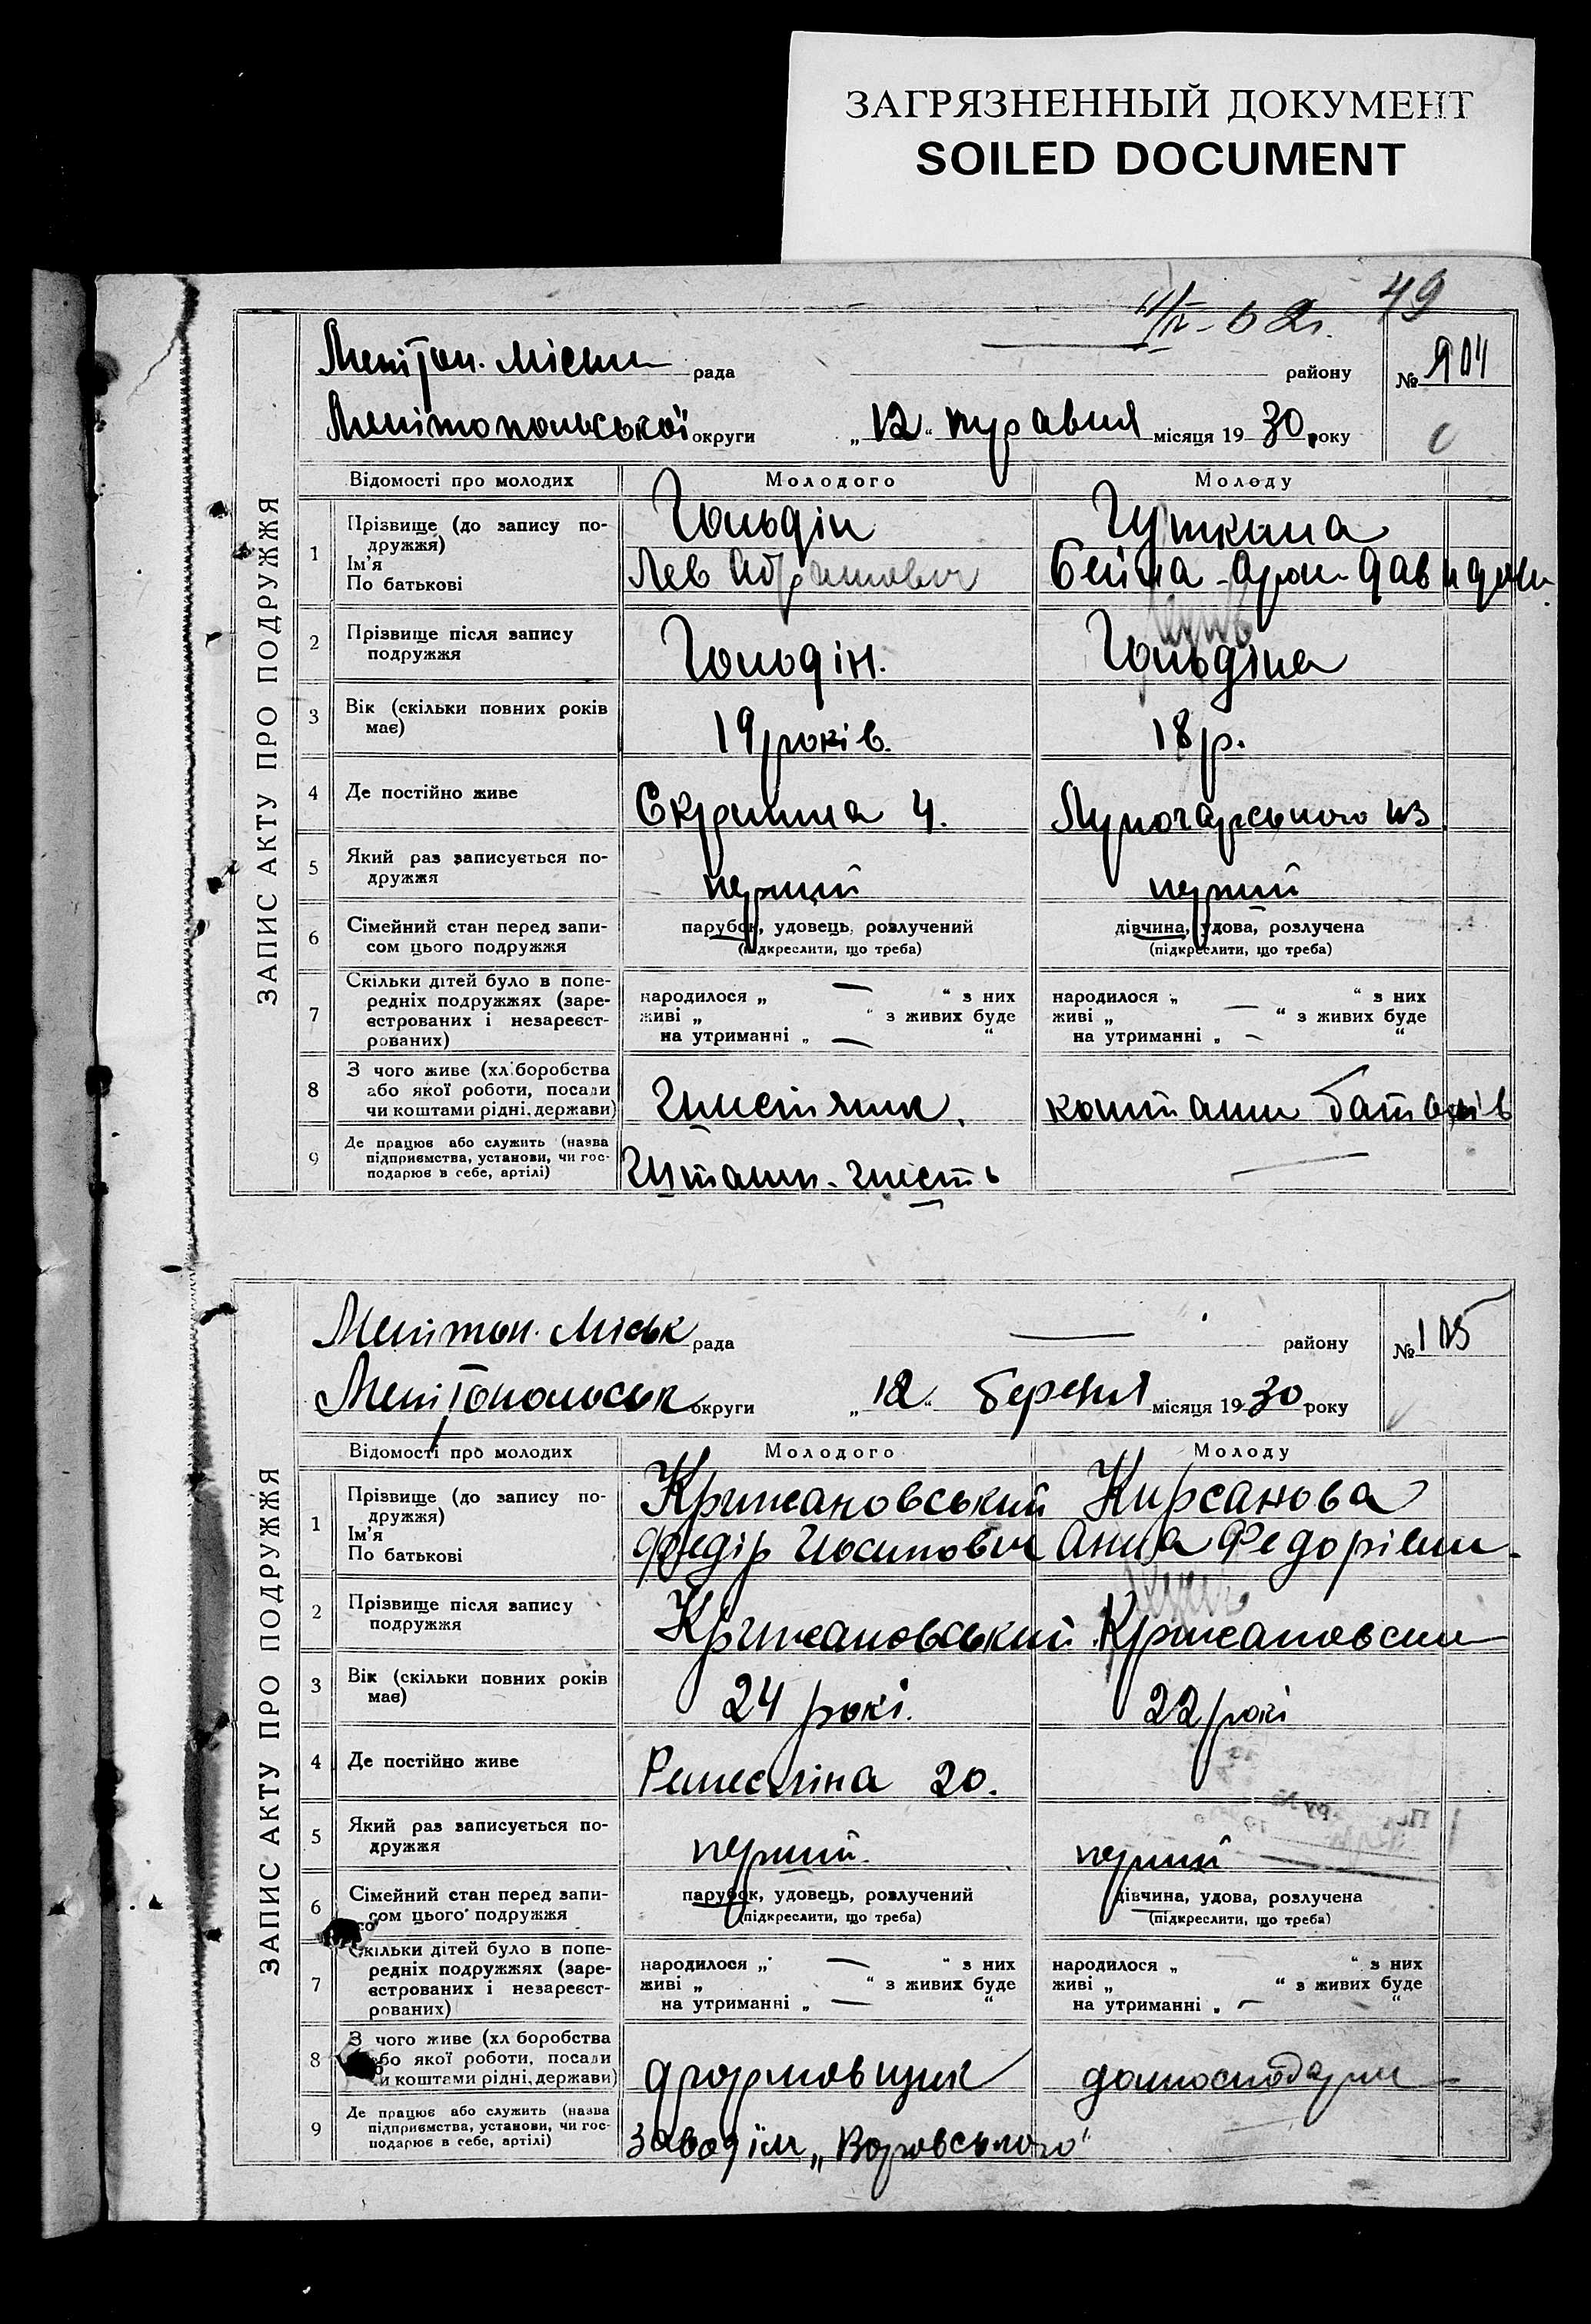 ЗАГРЯЗНЕННЫЙ ДОКУМЕНТ
SOILED DOCUMENT
49
ЗАПИС АКТУ ПРО ПОДРУЖЖЯ
Мелітоп. Міська рада району № 104
Мелітопольської округи „12“ травня місяця 1930 року
Відомості про молодих Молодого Молоду
1 Прізвище (до запису по-
дружжя)
Ім'я
По батькові
Гольдін Гуткина
Лев Абрамович Бейла-Арон-Давидовн.
2 Прізвище після запису
подружжя
Гольдін. Гольдіна
3 Вік (скільки повних років
має)
19 років. 18 р.
4 Де постійно живе
Скрипника 4. Луночарського
5 Який раз записується по-
дружжя
перший перший
6 Сімейний стан перед запи-
сом цього подружжя
парубок, удовець, розлучений дівчина, удова, розлучена
(підкреслити, що треба) (підкреслити, що треба)
7 Скільки дітей було в попе-
редніх подружжях (заре-
єстрованих і незареєст-
рованих)
народилося „ — “ з них народилося „ — “ з них
живі „ “ з живих буде живі „ “ з живих буде
на утриманні „ — “ на утриманні „ — “
8 З чого живе (хліборобства
або якої роботи, посади
чи коштами рідні, держави)
коштами батьків
9 Де працює або служить (назва
підприємства, установи, чи гос-
подарює в себе, артілі)
—
ЗАПИС АКТУ ПРО ПОДРУЖЖЯ
Мелітоп. Міськ рада — району № 105
Мелітопольськ округи „12“ березня місяця 1930 року
Відомості про молодих Молодого Молоду
1 Прізвище (до запису по-
дружжя)
Ім'я
По батькові
Крижановський Кирсанова
Федір Йосипович Анна Федорівн.
2 Прізвище після запису
подружжя
Крижановський Крижановськ
3 Вік (скільки повних років
має)
24 рокі. 22 рокі
4 Де постійно живе
20.
5 Який раз записується по-
дружжя
перший. перший
6 Сімейний стан перед запи-
сом цього подружжя
парубок, удовець, розлучений дівчина, удова, розлучена
(підкреслити, що треба) (підкреслити, що треба)
7 Скільки дітей було в попе-
редніх подружжях (заре-
єстрованих і незареєст-
рованих)
народилося „ — “ з них народилося „ “ з них
живі „ “ з живих буде живі „ “ з живих буде
на утриманні „ — “ на утриманні „ — “
8 З чого живе (хліборобства
або якої роботи, посади
чи коштами рідні, держави)
формовщик домогосподарка
9 Де працює або служить (назва
підприємства, установи, чи гос-
подарює в себе, артілі)
завод ім. „Воровського“